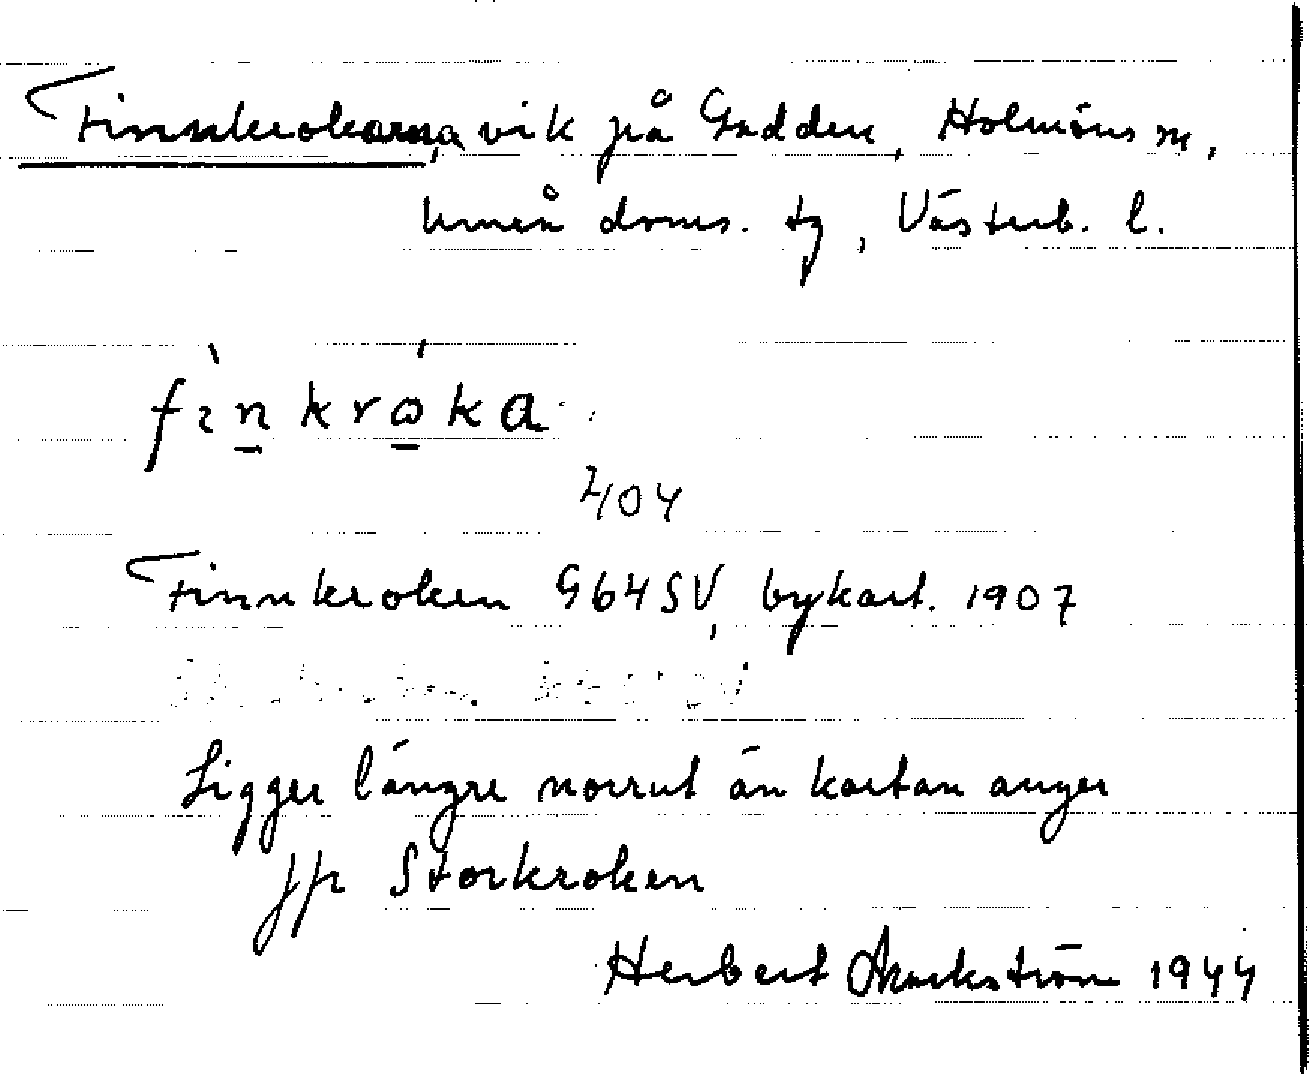 Finnkrokarna, vik på Gadden, Holmöns sn,
Umeå doms. tg, Västerb. l.
fìnkróka
404
Finnkroken G64SV, bykart. 1907
Ligger längre norrut än kartan anger
jfr Storkroken
Herbert Markström 1944